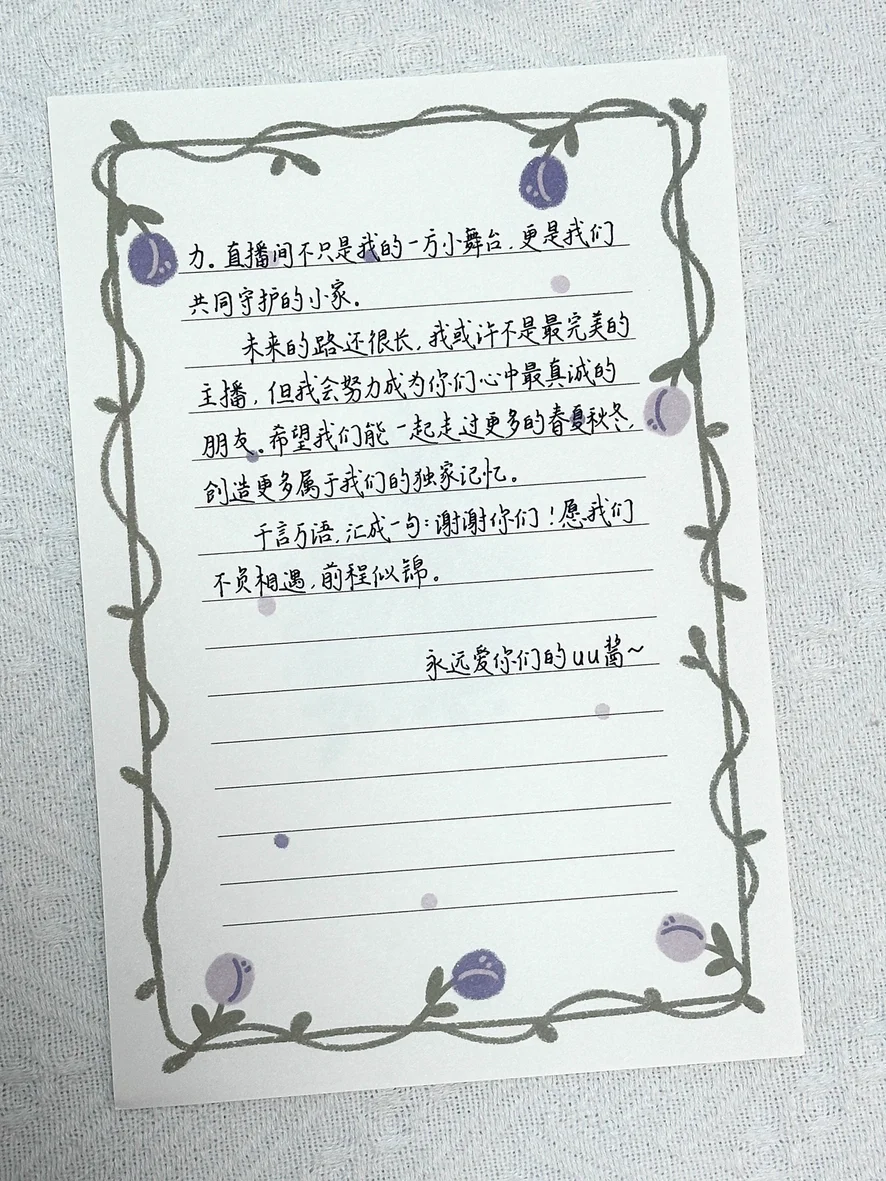 力。直播间不只是我的一方小舞台，更是我们
共同守护的小家。
未来的路还很长，我或许不是最完美的
主播，但我会努力成为你们心中最真诚的
朋友。希望我们能一起走过更多的春夏秋冬，
创造更多属于我们的独家记忆。
千言万语，汇成一句：谢谢你们！愿我们
不负相遇，前程似锦。
永远爱你们的uu酱~